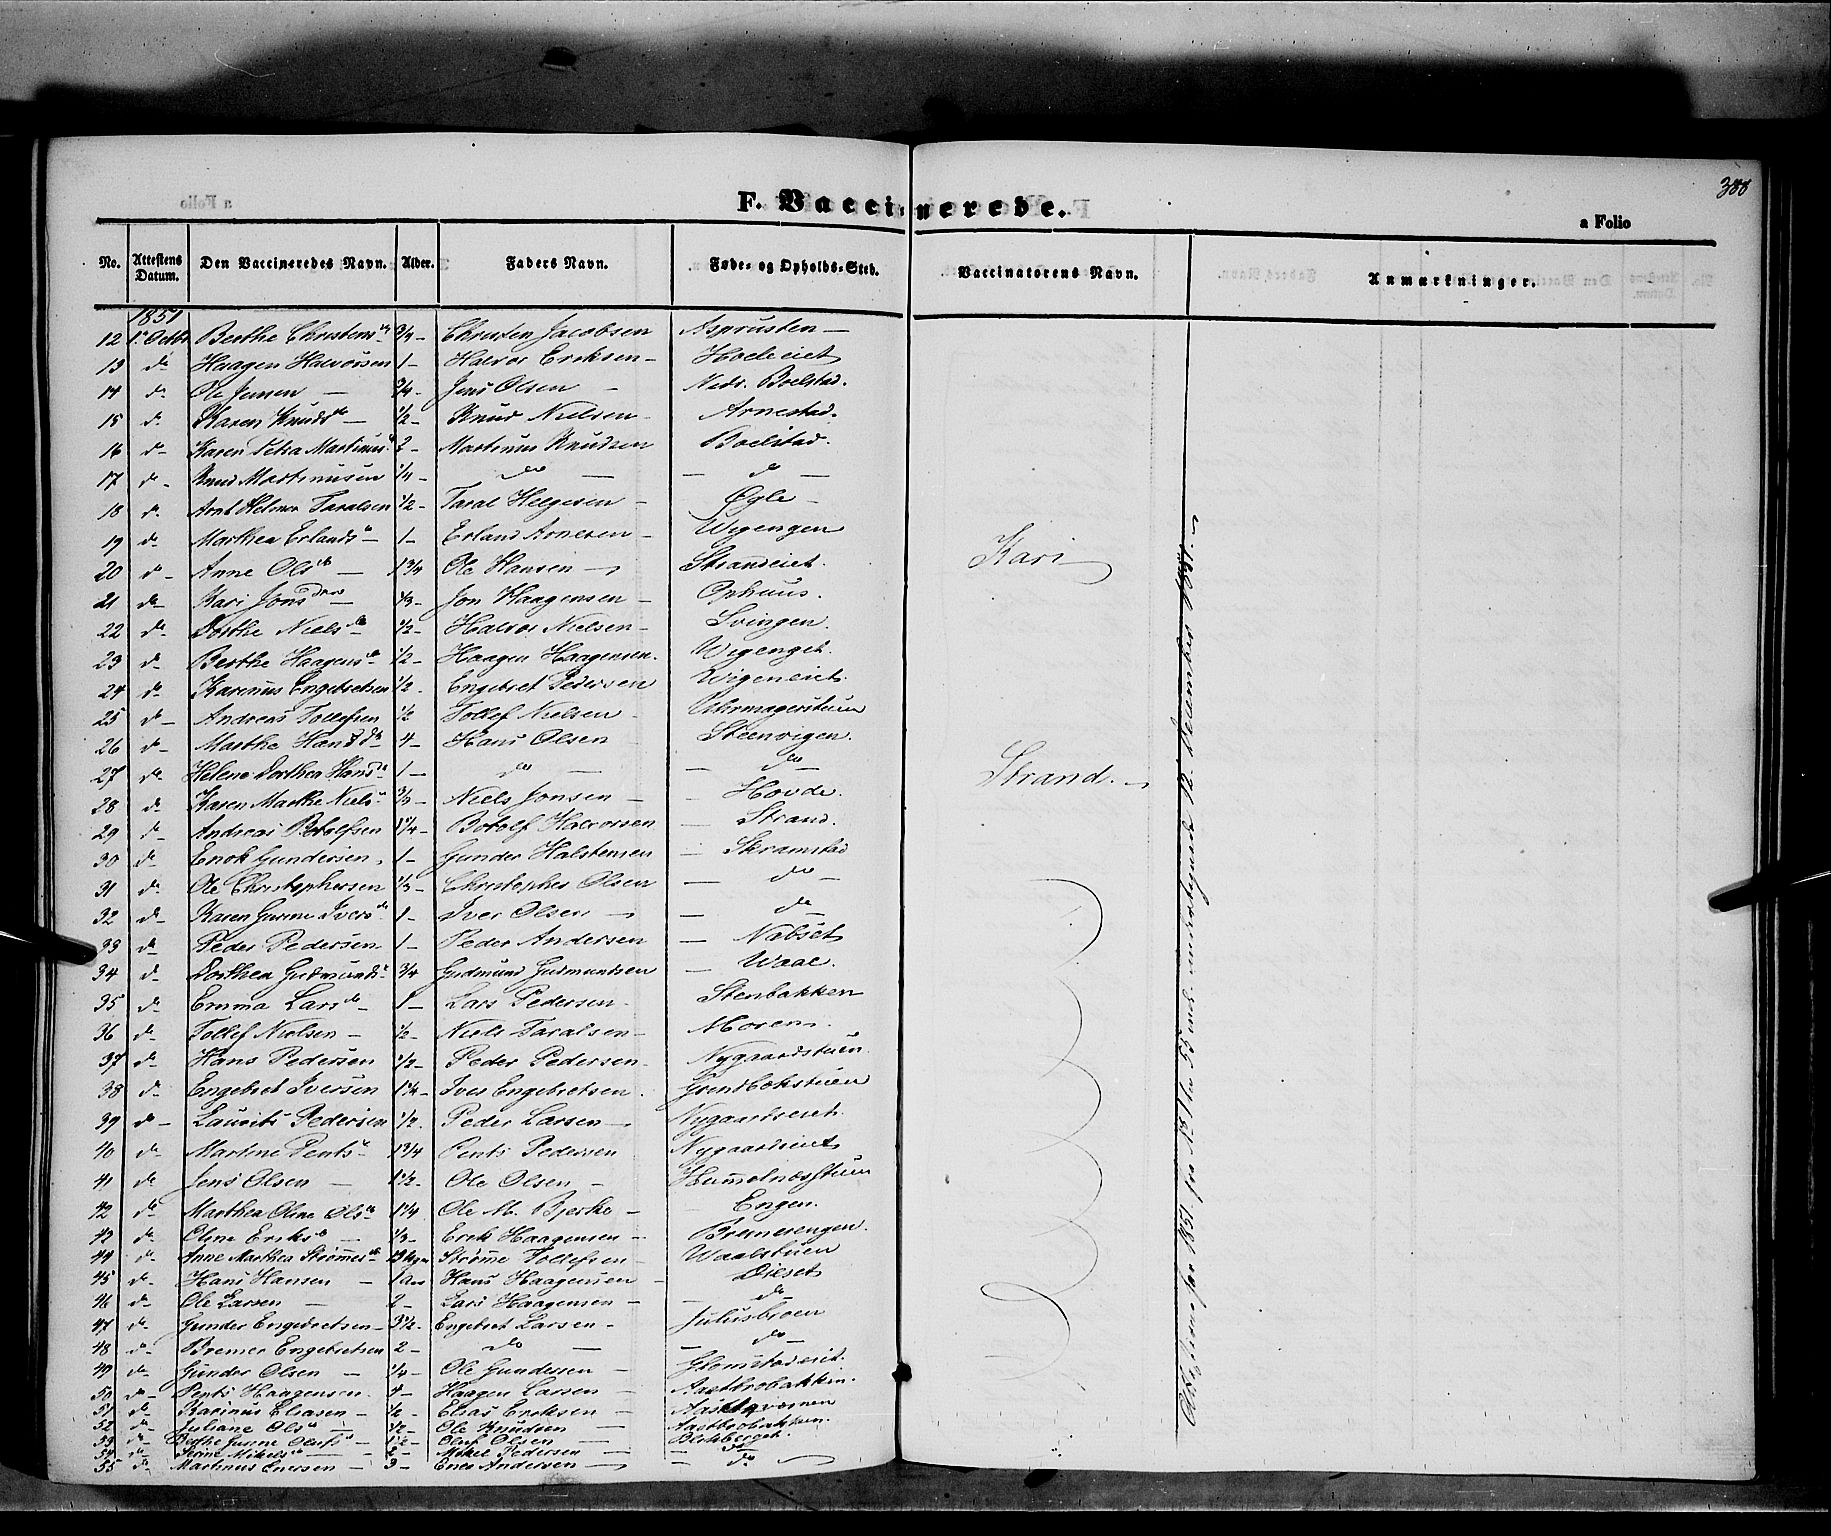 388
F. Vaccinerede.
a Folio
No. Attestens Datum. Den Vaccineredes Navn. Alder. Faders Navn. Føde- og Opholds-Sted. Vaccinatorens Navn. Anmærkninger.
1851
12 1 Octbr Berthe Christens 3/4 - Christen Jacobsen Asprusten -
13 do Haagen Halvorsen 1 - Halvor Eriksen - Hoeleiet
14 do Ole Jensen - 3/4 - Jens Olsen - Nedr. Boelstad.
15 do Karen Knudsdr - 1/2 - Knud Nielsen - Arnestad.
16 do Karen Petra Martinus 2 - Martinus Knudsen Boelstad.
17 do Knud Martinusen 1/4 - do - - do -
18 do Arnt Helmer Taralsen 1/2 - Taral Helgesen - Øgle -
19 do Marthea Erlands - 1 - Erland Arnesen - Wigengen
20 do Anne Ols - 1 3/4 Ole Hansen - Strandeiet.
Kari
21 do Kari Jons - Jon Haagensen - Ophuus.
22 do Dorthe Niels 1/2 - Halvor Nielsen - Svingen.
23 do Berthe Haagens 1/2 - Haagen Haagensen. Wigenget.
24 do Karinus Engebretsen 1/2 - Engebret Pedersen Wigeneiet.
25 do Andreas Tollefsen 1/2 Tollef Nielsen - Uhrmagerstuen
26 do Marthe Hansd 4 - Hans Olsen Steenvigen.
27 do Helene Dorthea Hansd 1 - do - - do -
Strand. -
28 do Karen Marthe Niels - Niels Jonsen - - Hovde.
29 do Andreas Botolfsen 1 1/4 - Botolf Halvorsen - Strand.
30 do Enok Gundersen, 1 - Gunder Halstensen - Skramstad
31 do Ole Christophersen 1/3 - Christopher Olsen - do -
32 do Karen Gurine Ivers 1 - Iver Olsen - - do -
33 do Peder Pedersen 1 - Peder Andersen - Nabset
34 do Dorthea Gudmunds 3/4 Gudmund Gudmundsen - Waal.
35 do Emma Lars 1 - Lars Pedersen - Stenbakken
36 do Tollef Nielsen - 1/2 - Niels Taralsen - Moren.
37 do Hans Pedersen 1/2 - Peder Pedersen - Nygaardstuen.
38 do Engebret Iversen 1 1/4 - Iver Engebretsen.
39 do Laurits Pedersen 1/2. Peder Larsen - Nygaardseiet.
40 do Martine Pents 1 3/4 Pents Pedersen Nygaardseiet
41 do Jens Olsen - 1 1/2 - Ole Olsen - Hummelnæsstuen
42 do Marthea Oline Ols 1 1/4 Ole M. Bjerke - Engen.
43 do Oline Eriks - 1/3 - Erik Haagensen - Bremerengen.
44 do Anne Marthea Strømmes Strømme Tollefsen - Waalstuen
45 do Hans Hansen - 1 Aar Hans Haagensen - Dieset
46 do Ole Larsen - 2 - Lars Haagensen - - do -
47 do Gunder Engebretsen - 3 1/2 - Engebret Larsen - Julusbroen
48 do Bremer Engebretsen 2 - do - - do -
49 do Gunder Olsen - 1/4 - Ole Gundersen - Glomstadeiet.
50 do Pents Haagensen. 4 - Haagen Larsen - Aastbrobakken.
51 do Karinus Eliasen - 1/2 - Elias Eriksen - Aastqvernen
52 do Juliane Ols - 1/2 - Ole Knudsen - Aastbrobakken.
53 do Berthe Gurine Olufs - 1 1/2 - Oluf Olsen - Bliksberget.
54 do Mikels - 2 - Mikel Pedersen - - do -
55 do Martinus Enersen - 3 - Ener Andersen - - do -
for 1851. fra No 1 til No 55 incl. undertegnede 12 December 1851. -